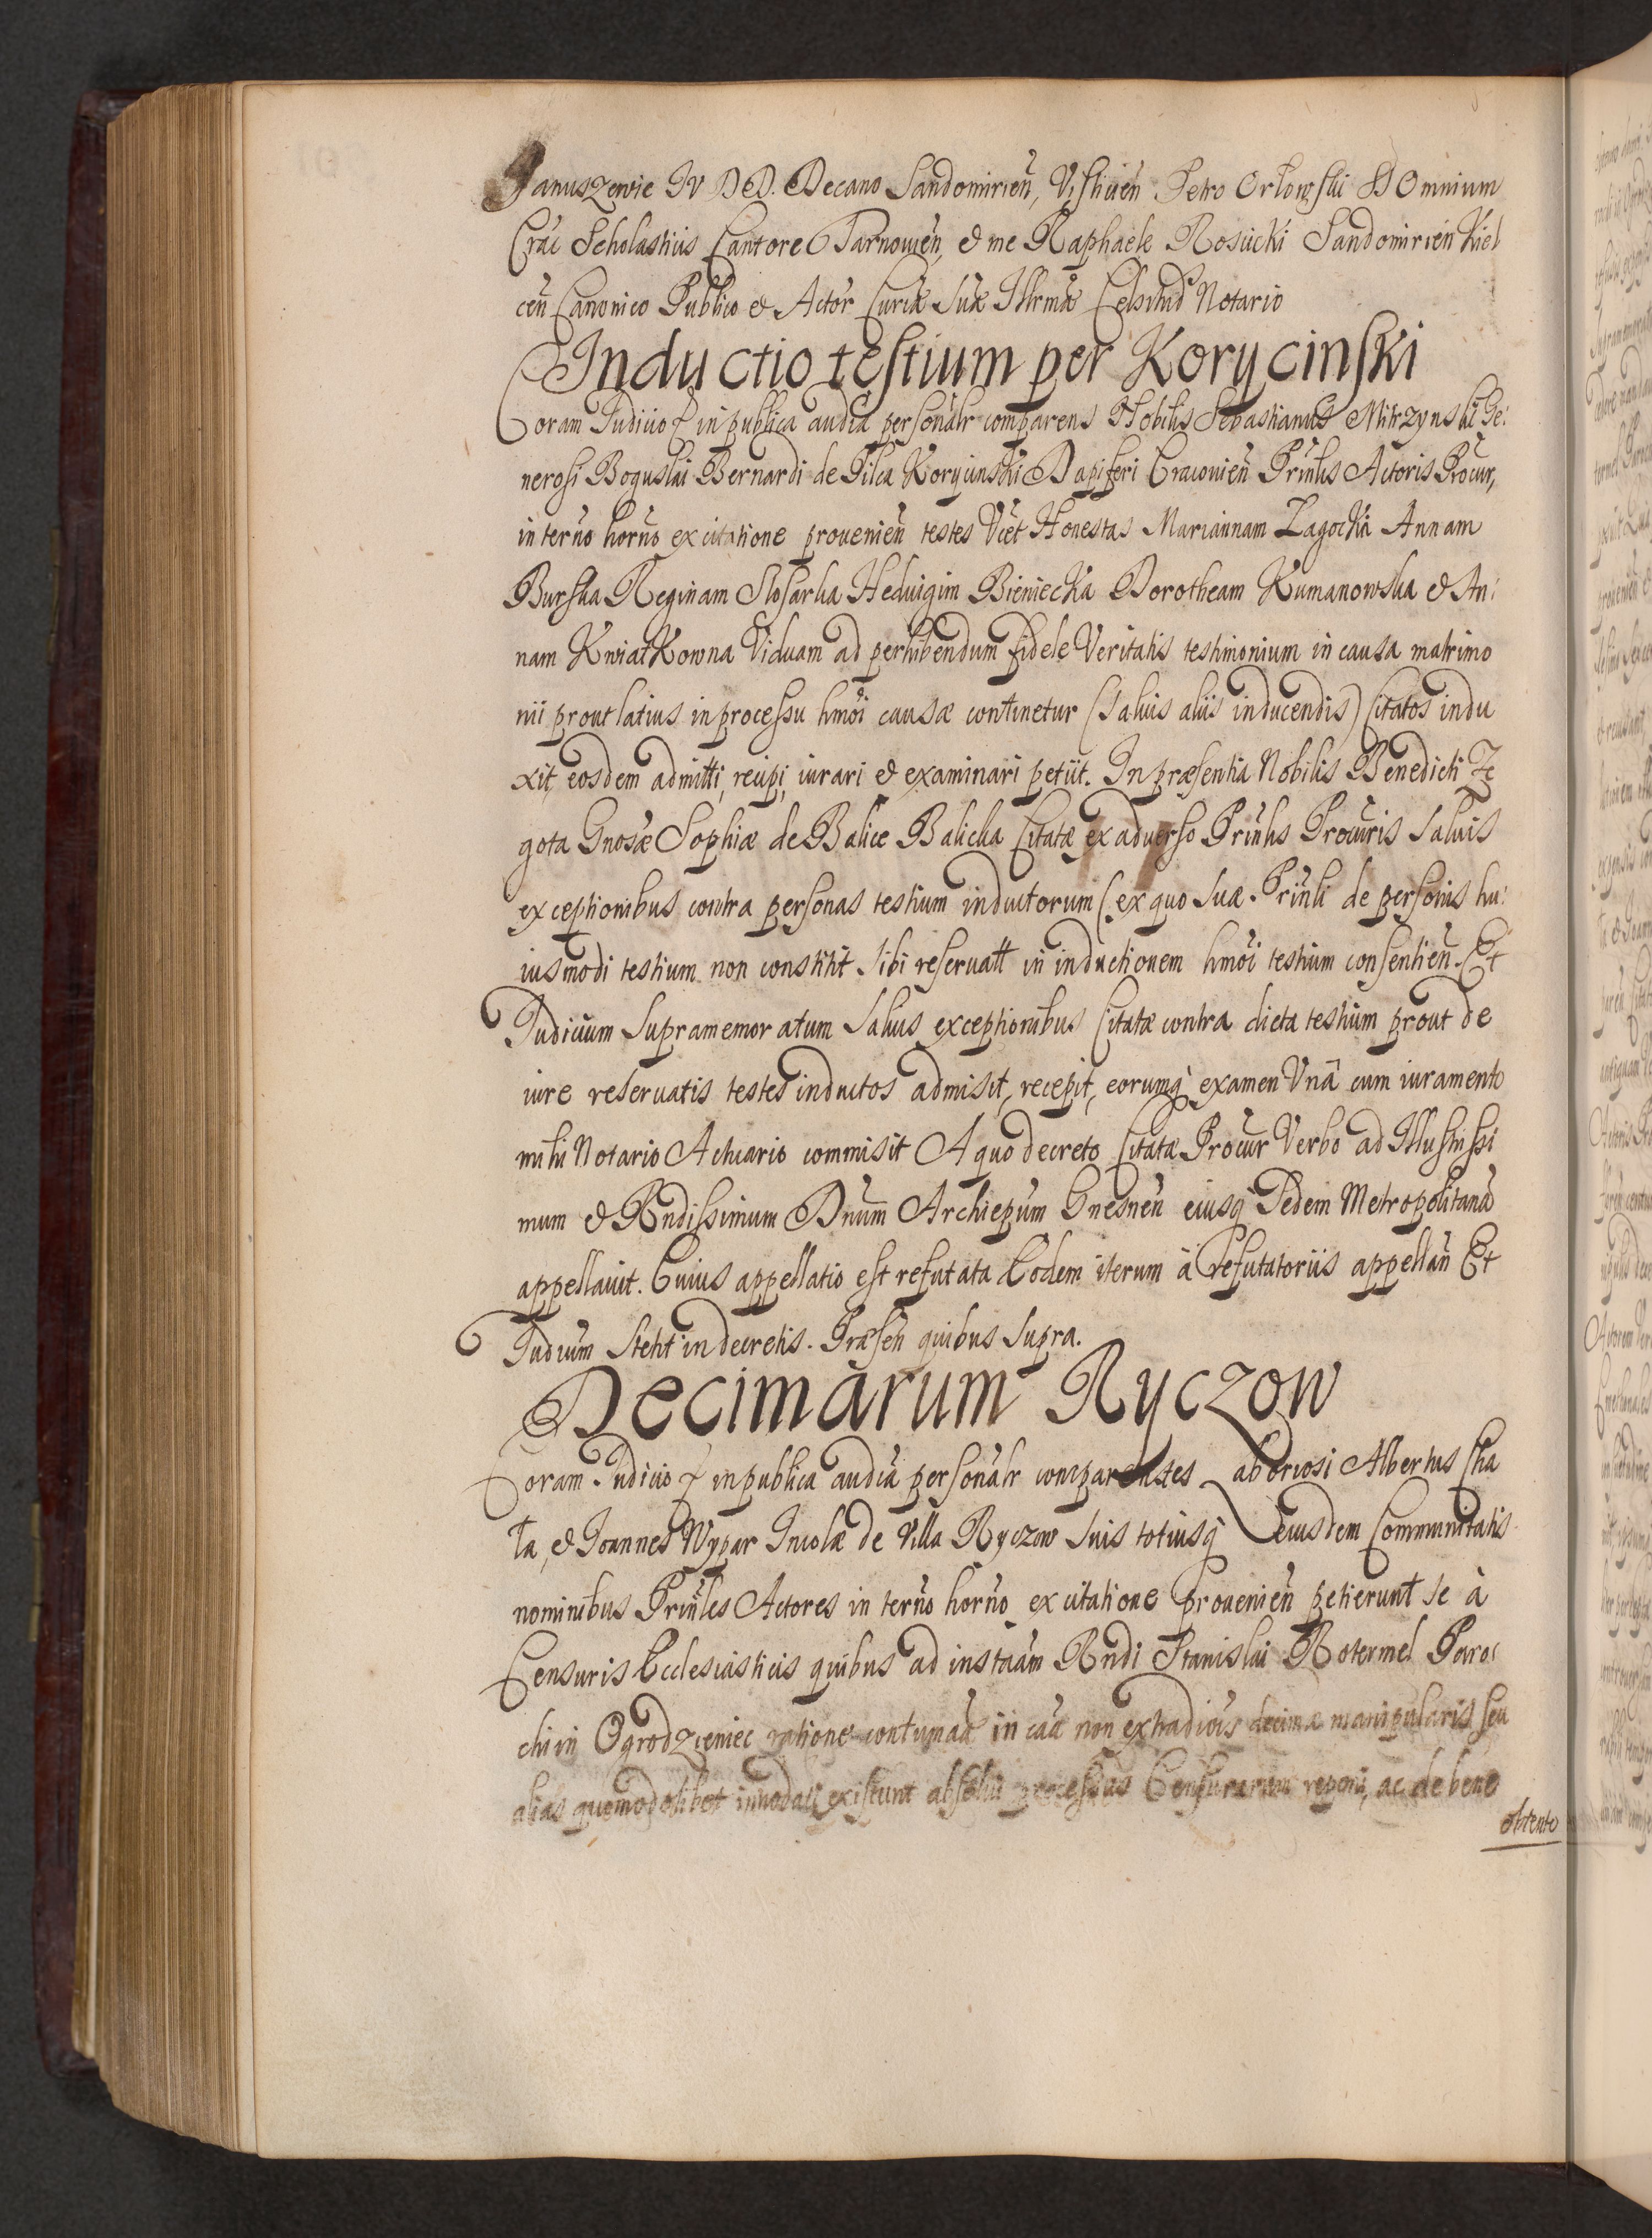 Januszewic IV DED. Decano Sandomirień, Vislicień Petro Orłowski SS Omnium
Crác Scholasticis Cantore Tarnowień, & me Raphaele Rosiicki Sandomirień Kiel
ceń Canonico Publico & Actor Curiæ Suæ Illrmæ Celsitud Notario
Inductio testium per Korycinski
Coram Iudicio & in publica audia personalr comparens Nobilis Sebastianus Mitrzynski Ge:
nerosi Boguslai Bernardi de Pilca Korycinski Dapiferi Cracovień Prinlis Actoris Procur,
in terno horno ex citatione provenień testes Vict Honestas Mariannam Zagocka Annam
Burska Reginam Slosarka Heduigim Bieniecka Dorotheam Kumanowska & An:
nam Kwiatkowna Viduam ad perhibendum fidele Veritatis testimonium in causa matrimo
nii prout latius in processu hmoi causæ continetur (Salvis aliis inducendis) Citatos indu
xit, eosdem admitti, recipi, iurari & examinari petiit. In præsentia Nobilis Benedicti Ze
gota Gnosæ Sophiæ de Balice Balicka Citatæ ex adverso Prinlis Procuris Salvis
exceptionibus contra personas testium inductorum (ex quo Suæ Prinli de personis hu:
iusmodi testium non constitit sibi reservatt in inductionem hmoi testium consentień. Et
Iudicium Supramemoratum Salvis exceptionibus Citatæ contra dicta testium prout de
iure reservatis testes inductos admisit, recepit, eorumq examen Vnâ cum iuramento
mihi Notario Actuario commisit A quo decreto Citatæ Procur Verbo ad Illustrissi
mum & Rndissimum Dnum Archiepum Gnesneń eiusq Sedem Metropolitanâ
appellavit. Cuius appellatio est refutata Eodem iterum à refutatoriis appellań Et
Iudium Stetit in decretis. Præseń quibus Supra.
Decimarum Ryczow
Coram Iudicio & in publica audia personalr comparentes Laboriosi Albertus Cha
ła, & Ioannes Wypar Incolæ de Villa Ryczow Suis totiusq eiusdem Communitatis
nominibus Prinles Actores in terno horno ex citatione provenień petierunt se à
Censuris Ecclesiasticis quibus ad instaam Rndi Stanislai Rotermel Paro:
chi in Ogrodzieniec ratione contumaâ in caâ non extradiois decimæ manipularis seu
alias quomodolibet innodati existunt absolvi processus Censurarum reponi, ac de bene
obtento